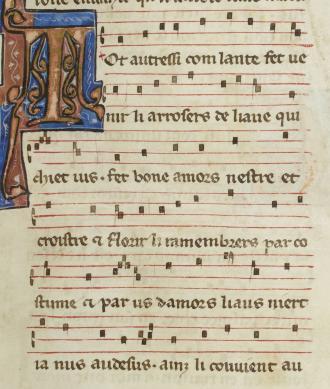 Tot autressi com lante fet ue
nir li arrosers de liaue qui
chiet ius · fet bone amors nestre et
croistre et florir li ramembrers par co
stume et par us damors liaus niert
ia nus audesus · ainz li couuient au